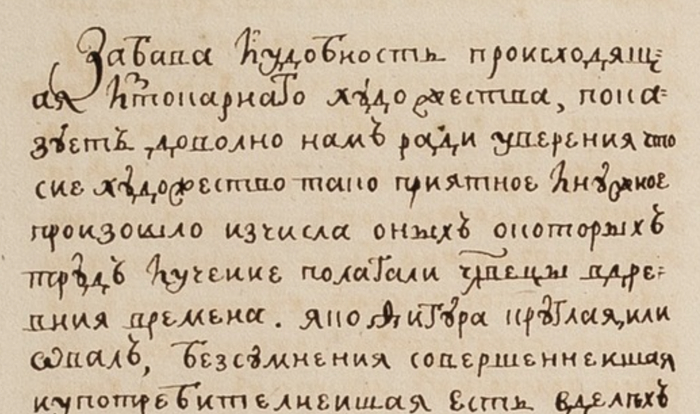 Забава иудобность происходящ:
ая ѿтокарнаго художества, пока=
зуетъ доволно намъ ради уверения что
сие художество тако приятное инужное
произошло изчисла оныхъ окоторыхъ
трудъ иучение полагали вдре:
вния времена. яко фигура круглая, или
ѡвалъ, безсумнения совершеннеишая
иупотребителнеишая есть вделѣхъ